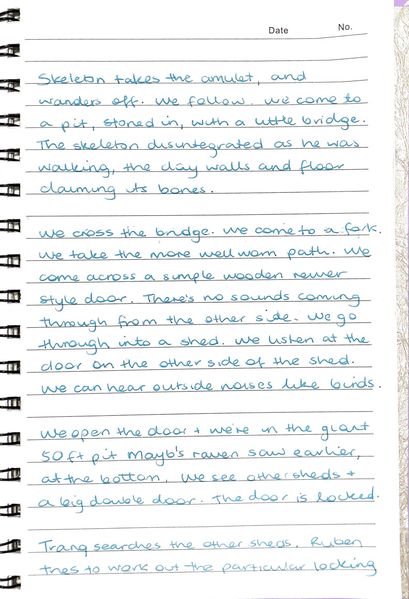 Date
No.
Skeleton takes the amulet, and
wanders off. We follow. We come to
a pit, stoned in, with a little bridge.
The skeleton disintegrated as he was
walking, the clay walls and floor
claiming its bones.
We cross the bridge. We come to a fork.
We take the more well worn path. We
come across a simple wooden newer
style door. There's no sounds coming
through from the other side. We go
through into a shed. We listen at the
door on the other side of the shed.
We can hear outside noises like birds.
We open the door + we're in the giant
50ft pit Mayb's raven saw earlier,
at the bottom. We see other sheds +
a big double door. The door is locked.
Trang searches the other sheds. Ruben
tries to work out the particular locking